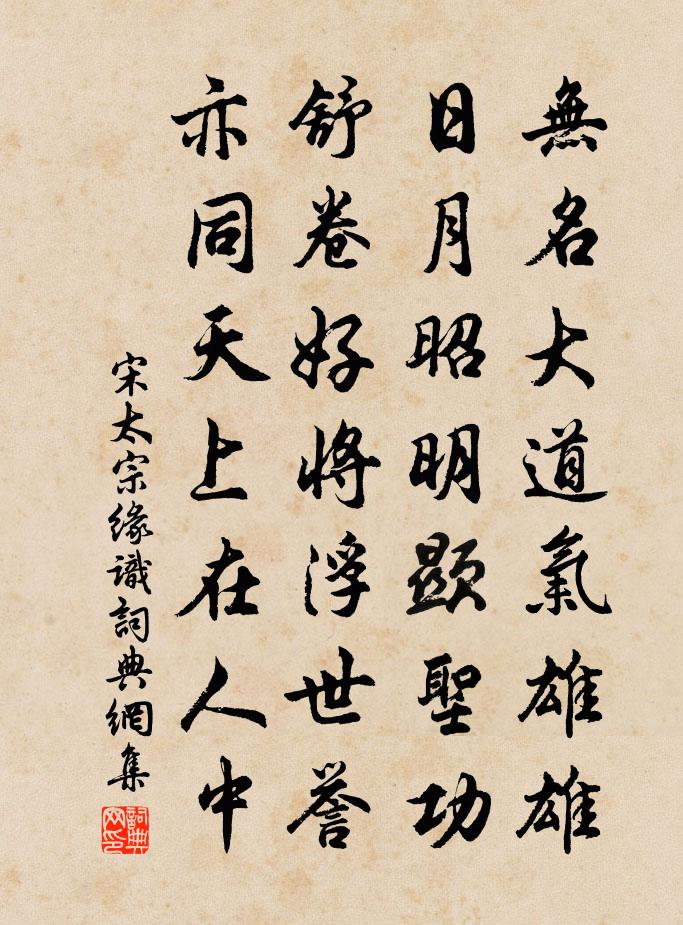 無名大道氣雄雄
日月昭明顯聖功
舒卷好將浮世誉
亦同天上在人中
宋太宗緣識詞典網集
詞典网印